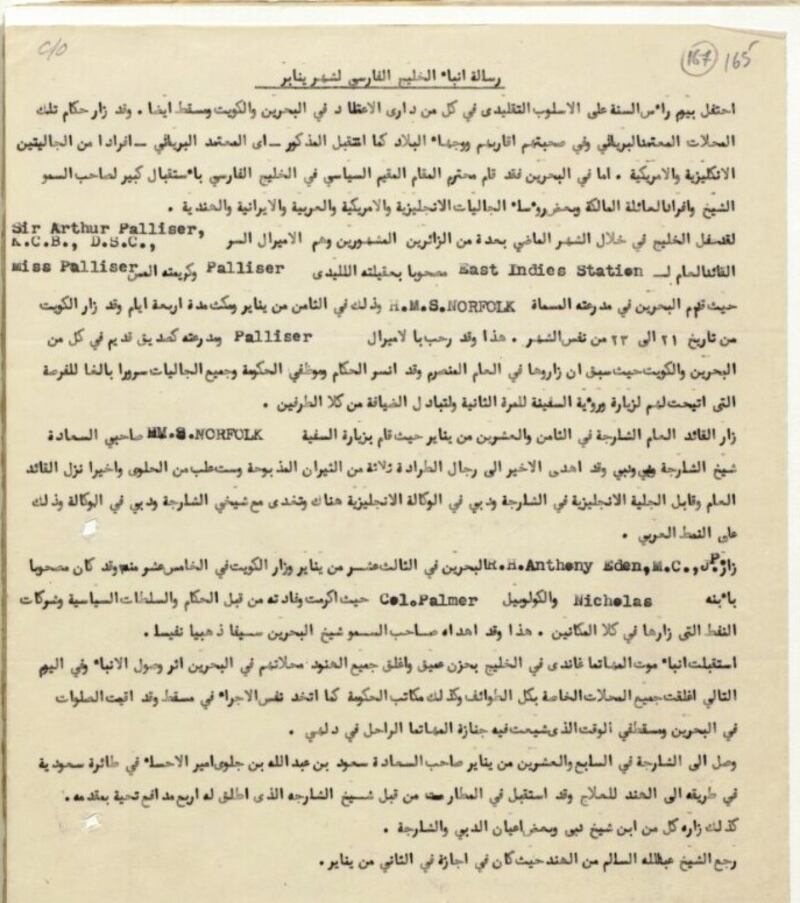 C/O
167 165
رسالة انباء الخليج الفارسي لشهر يناير
احتفل بيوم رأس السنة على الاسلوب التقليدى في كل من دارى الاعتقا د في البحرين والكويت ومسقط ايضا . وقد زار حكام تلك
المحلات المعتمدالبريطاني وفي صحبتهم اقاربهم ووجهاء البلاد كما استقبل المذكور ــ اى المعتمد البريطاني ــ افرادا من الجاليتين
الانكليزية والامريكية . اما في البحرين فقد قام محترم المقام المقيم السياسي في الخليج الفارسي باستقبال كبير لصاحب السمو
الشيخ وافرادالعائلة المالكة وبعض روءساء الجاليات الانجليزية والامريكية والعربية والايرانية والهندية .
لقدحفل الخليج في خلال الشهر الماضي بعدة من الزائرين المشهورين وهم الاميرال السر Sir Arthur Palliser, K.C.B., D.S.C.,
القائدالعام لــ East Indies Station مصحوبا بعقيلته الليدى Palliser وكريمته المس Miss Palliser
حيث قدم البحرين في مدرعته المسماة H.M.S.NORFOLK وذلك في الثامن من يناير ومكث مدة اربعة ايام وقد زار الكويت
من تاريخ ٢١ الى ٢٣ من نفس الشهر . هذا وقد رحب با لاميرال Palliser ومدرعته كصديق قديم في كل من
البحرين والكويت حيث سبق ان زاروها في العام المنصرم وقد انسر الحكام وموظفي الحكومة وجميع الجاليات سرورا بالغا للفرصة
التى اتيحت لهم لزيارة وروءية السفينة للمرة الثانية ولتبادل الضيافة من كلا الطرفين .
زار القائد العام الشارجة في الثامن والعشرين من يناير حيث قام بزيارة السفية HM.S.NORFOLK صاحبي السعادة
شيخ الشارجة ودبي وقد اهدى الاخير الى رجال الطرادة ثلاثة من الثيران المذ بوحة وست علب من الحلوى واخيرا نزل القائد
العام وقابل الجلية الانجليزية في الشارجة ودبي في الوكالة الانجليزية هناك وتغدى مع شيخي الشارجة ودبي في الوكالة وذ لك
على النمط العربي .
زار R.H.Anthony Eden,M.C.,J.P. البحرين في الثالث عشر من يناير وزار الكويت في الخامس عشر منه وقد كان مصحوبا
بابنه Nicholas والكولونيل Col.Palmer حيث اكرمت وفادته من قبل الحكام والسلطات السياسية وشركات
النفط التى زارها في كلا المكانين . هذا وقد اهداه صاحب السمو شيخ البحرين سيفا ذهبيا نفيسا .
استقبلت انباء موت المهاتما غاندى في الخليج بحزن عميق واغلق جميع الهنود محلاتهم في البحرين اثر وصول الانباء وفي اليوم
التالي اغلقت جميع المحلات الخاصة بكل الطوائف وكذ لك مكاتب الحكومة كما اتخذ نفس الاجراء في مسقط وقد اقيمت الصلوات
في البحرين ومسقط في الوقت الذى شيعت فيه جنازة المهاتما الراحل في د لهي .
وصل الى الشارجة في السابع والعشرين من يناير صاحب السعادة سعود بن عبد الله بن جلوى امير الاحساء في طائرة سعود ية
في طريقه الى الهند للعلاج وقد استقبل في المطار من قبل شيخ الشارجه الذى اطلق له اربع مدافع تحية بمقدمه .
كذلك زاره كل من ابن شيخ دبى وبعض اعيان الدبي والشارجة .
رجع الشيخ عبدالله السالم من الهند حيث كان في اجازة في الثاني من يناير .